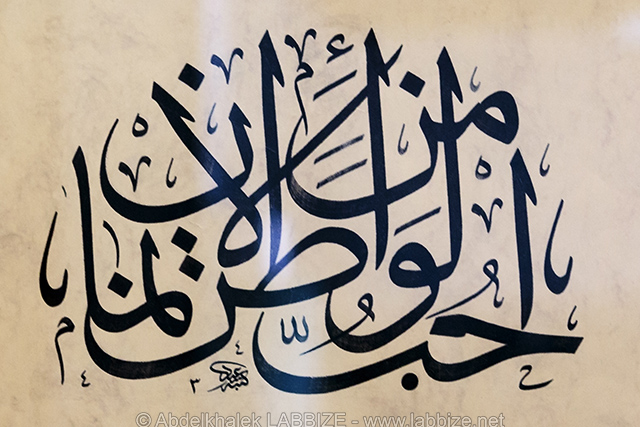 حب الوطن من الإيمان
© Abdelkhalek LABBIZE - www.labbize.net